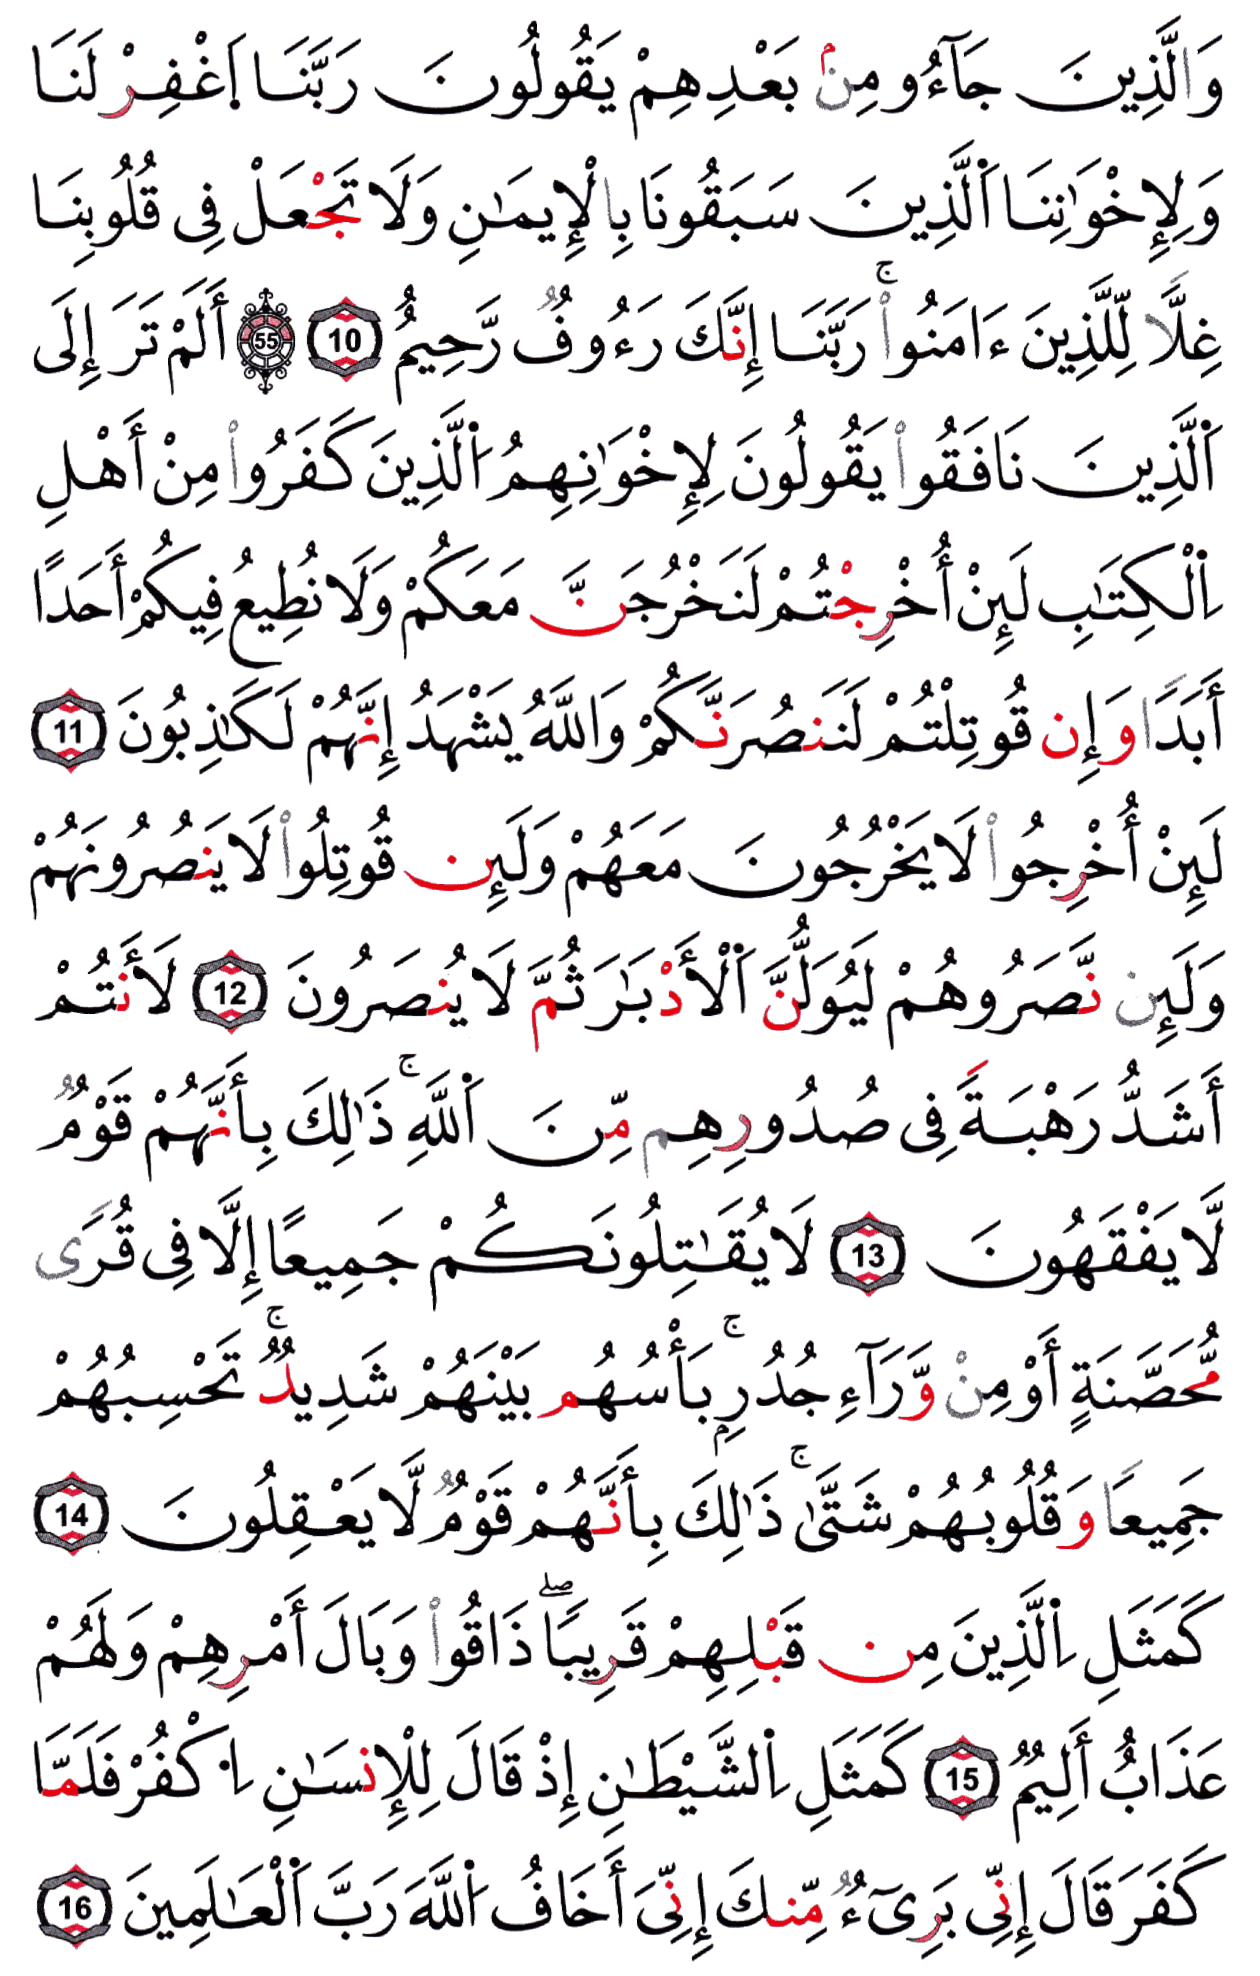 وَالَّذِينَ جَآءُو مِنۢ بَعْدِهِمْ يَقُولُونَ رَبَّنَا اَ۪غْفِرْ لَنَا
وَلِإِخْوَٰنِنَا اَ۬لَّذِينَ سَبَقُونَا بِالْإِيمَٰنِ وَلَا تَجْعَلْ فِى قُلُوبِنَا
غِلًّا لِّلَّذِينَ ءَامَنُوا۟ۚ رَبَّنَا إِنَّكَ رَءُوفٌ رَّحِيمٌ 10 55 أَلَمْ تَرَ إِلَى
اَ۬لَّذِينَ نَافَقُوا۟ يَقُولُونَ لِإِخْوَٰنِهِمُ اُ۬لَّذِينَ كَفَرُوا۟ مِنْ أَهْلِ
اِ۬لْكِتَٰبِ لَئِنْ أُخْرِجْتُمْ لَنَخْرُجَنَّ مَعَكُمْ وَلَا نُطِيعُ فِيكُمْ أَحَدًا
أَبَدًا وَإِن قُوتِلْتُمْ لَنَنصُرَنَّكُمْ وَاللَّهُ يَشْهَدُ إِنَّهُمْ لَكَٰذِبُونَ 11
لَئِنْ أُخْرِجُوا۟ لَا يَخْرُجُونَ مَعَهُمْ وَلَئِن قُوتِلُوا۟ لَا يَنصُرُونَهُمْ
وَلَئِن نَّصَرُوهُمْ لَيُوَلُّنَّ اَ۬لْأَدْبَٰرَ ثُمَّ لَا يُنصَرُونَ 12 لَأَنتُمْ
أَشَدُّ رَهْبَةً فِى صُدُورِهِم مِّنَ اَ۬للَّهِۚ ذَٰلِكَ بِأَنَّهُمْ قَوْمٌ
لَّا يَفْقَهُونَ 13 لَا يُقَٰتِلُونَكُمْ جَمِيعًا إِلَّا فِى قُرًى
مُّحَصَّنَةٍ أَوْ مِنْ وَّرَآءِ جُدُرِۭۚ بَأْسُهُم بَيْنَهُمْ شَدِيدٌۚ تَحْسِبُهُمْ
جَمِيعًا وَقُلُوبُهُمْ شَتَّىٰۚ ذَٰلِكَ بِأَنَّهُمْ قَوْمٌ لَّا يَعْقِلُونَ 14
كَمَثَلِ اِ۬لَّذِينَ مِن قَبْلِهِمْ قَرِيبًاۖ ذَاقُوا۟ وَبَالَ أَمْرِهِمْ وَلَهُمْ
عَذَابٌ أَلِيمٌ 15 كَمَثَلِ اِ۬لشَّيْطَٰنِ إِذْ قَالَ لِلْإِنسَٰنِ اِ۟كْفُرْ فَلَمَّا
كَفَرَ قَالَ إِنِّى بَرِىٓءٌ مِّنكَ إِنِّىَ أَخَافُ اُ۬للَّهَ رَبَّ اَ۬لْعَٰلَمِينَ 16